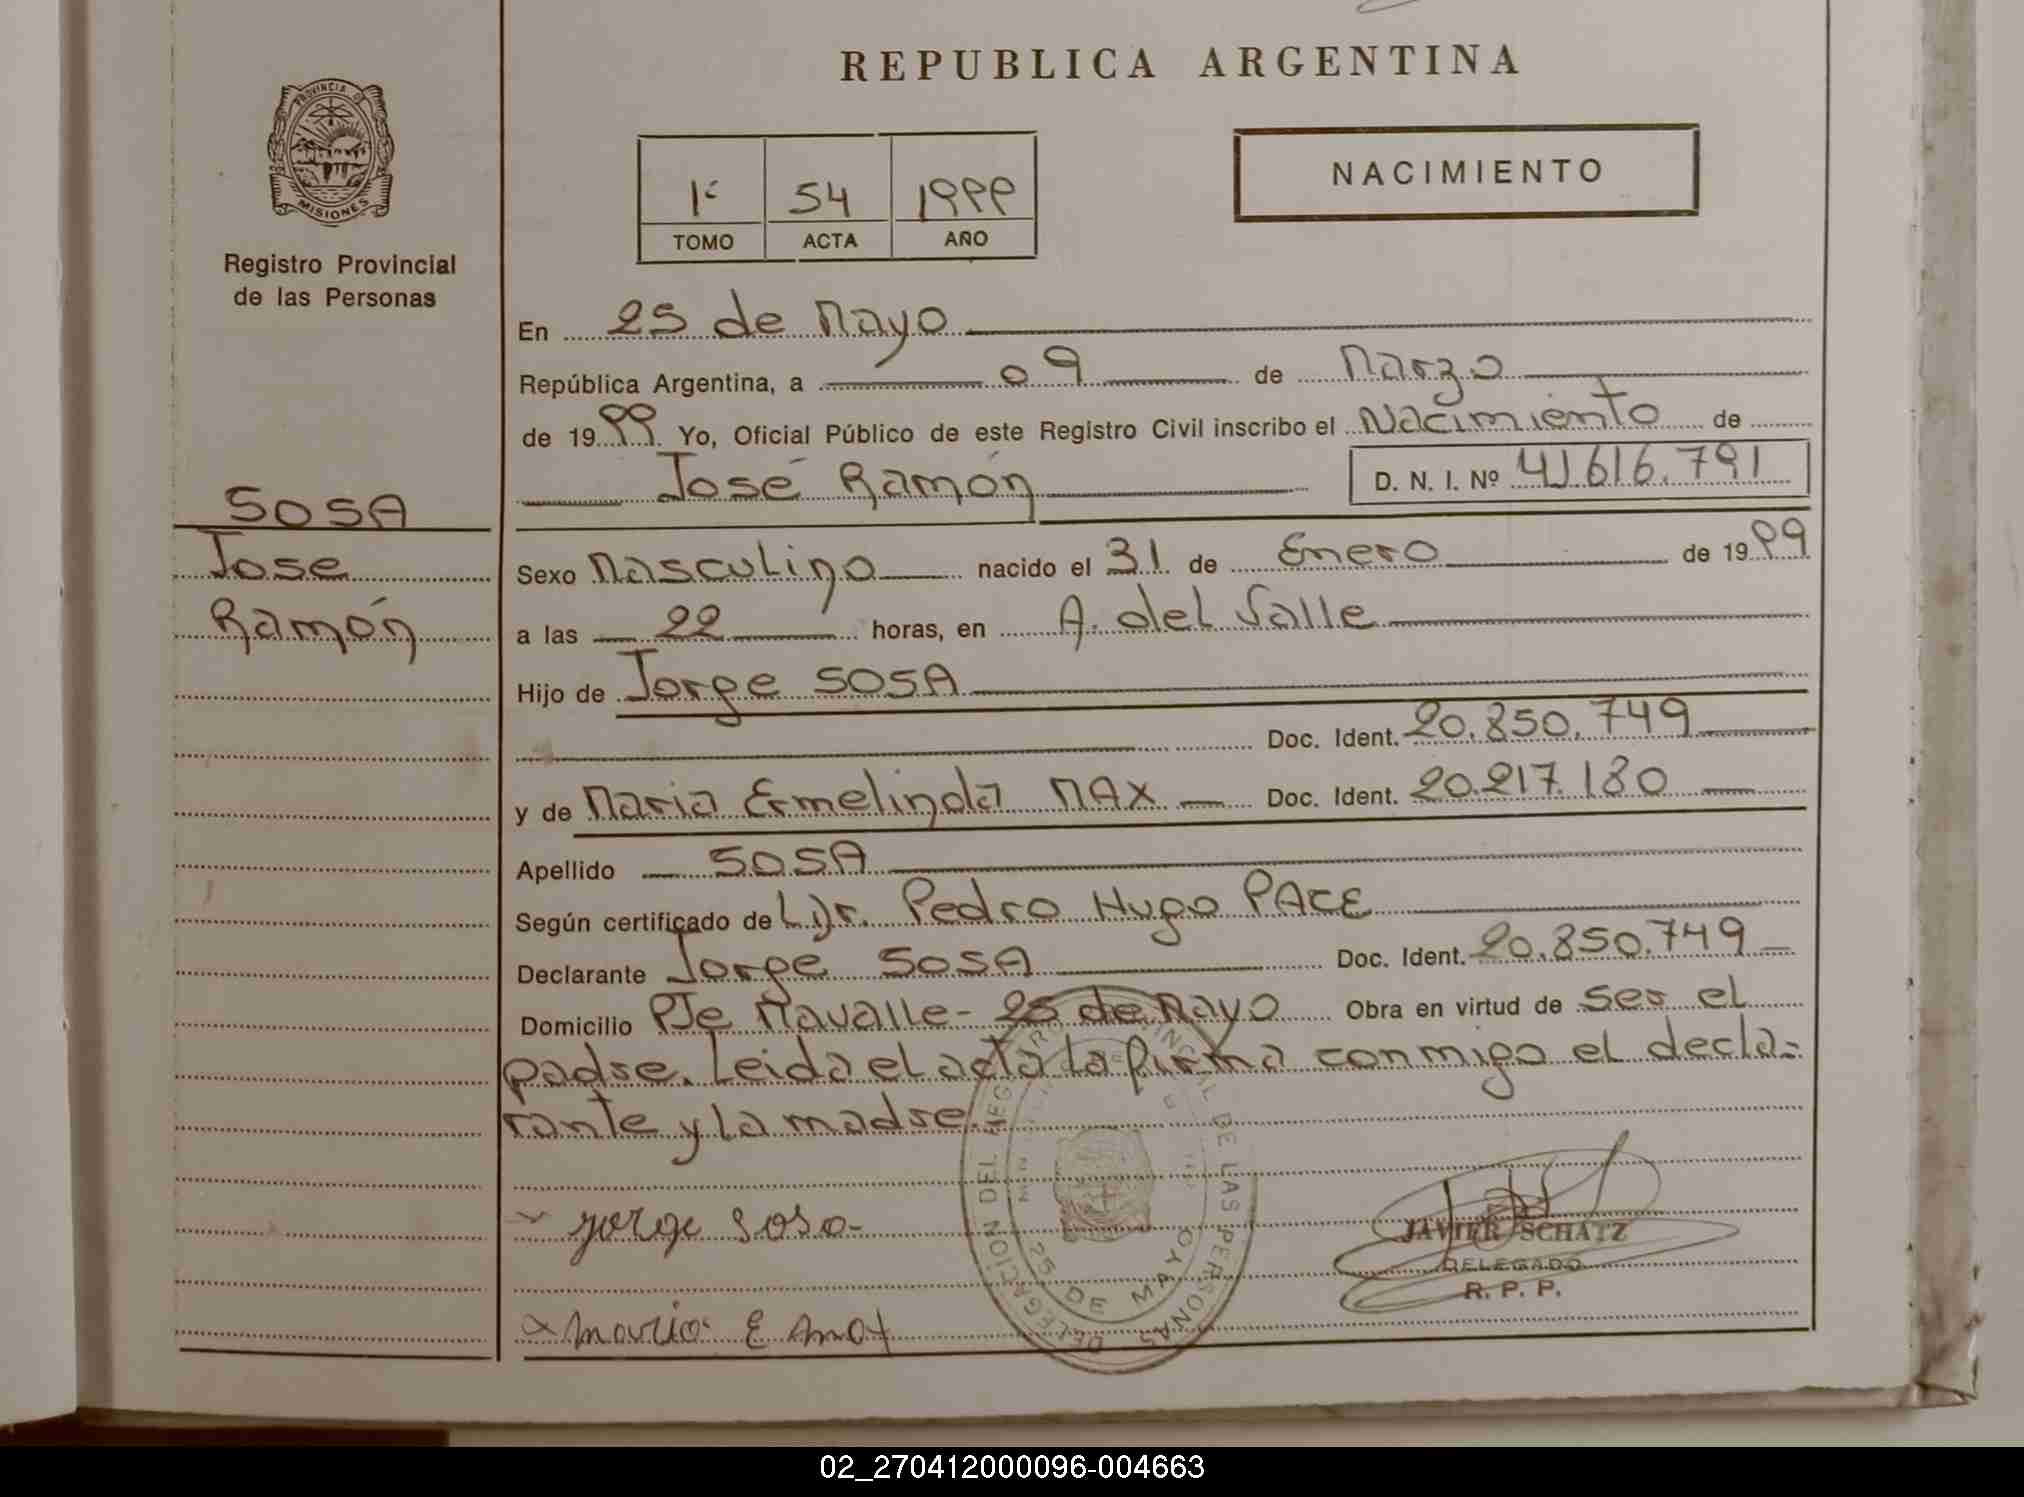 REPUBLICA ARGENTINA
PROVINCIA DE
MISIONES
Registro Provincial
de las Personas
1º 54 1999
TOMO ACTA AÑO
NACIMIENTO
En 25 de Mayo
República Argentina, a 09 de Marzo
de 1999. Yo, Oficial Público de este Registro Civil inscribo el Nacimiento de
José Ramón D. N. I. Nº 41.616.791
SOSA
Jose
Ramón
Sexo Masculino nacido el 31 de Enero de 1999
a las 22 horas, en A. del Valle
Hijo de Jorge SOSA
Doc. Ident. 20.850.749
y de Maria Ermelinda MAX Doc. Ident. 20.217.180
Apellido SOSA
Según certificado de Pedro Hugo PACE
Declarante Jorge SOSA Doc. Ident. 20.850.749
Domicilio PJe Mavalle - 25 de Mayo Obra en virtud de ser el
padre. Leida el acta la firma conmigo el decla-
rante y la madre.-
Jorge Sosa-
JAVIER SCHATZ
DELEGADO
R. P. P.
Maria E
DELEGACION DEL REGISTRO PROVINCIAL DE LAS PERSONAS
25 DE MAYO
02_270412000096-004663